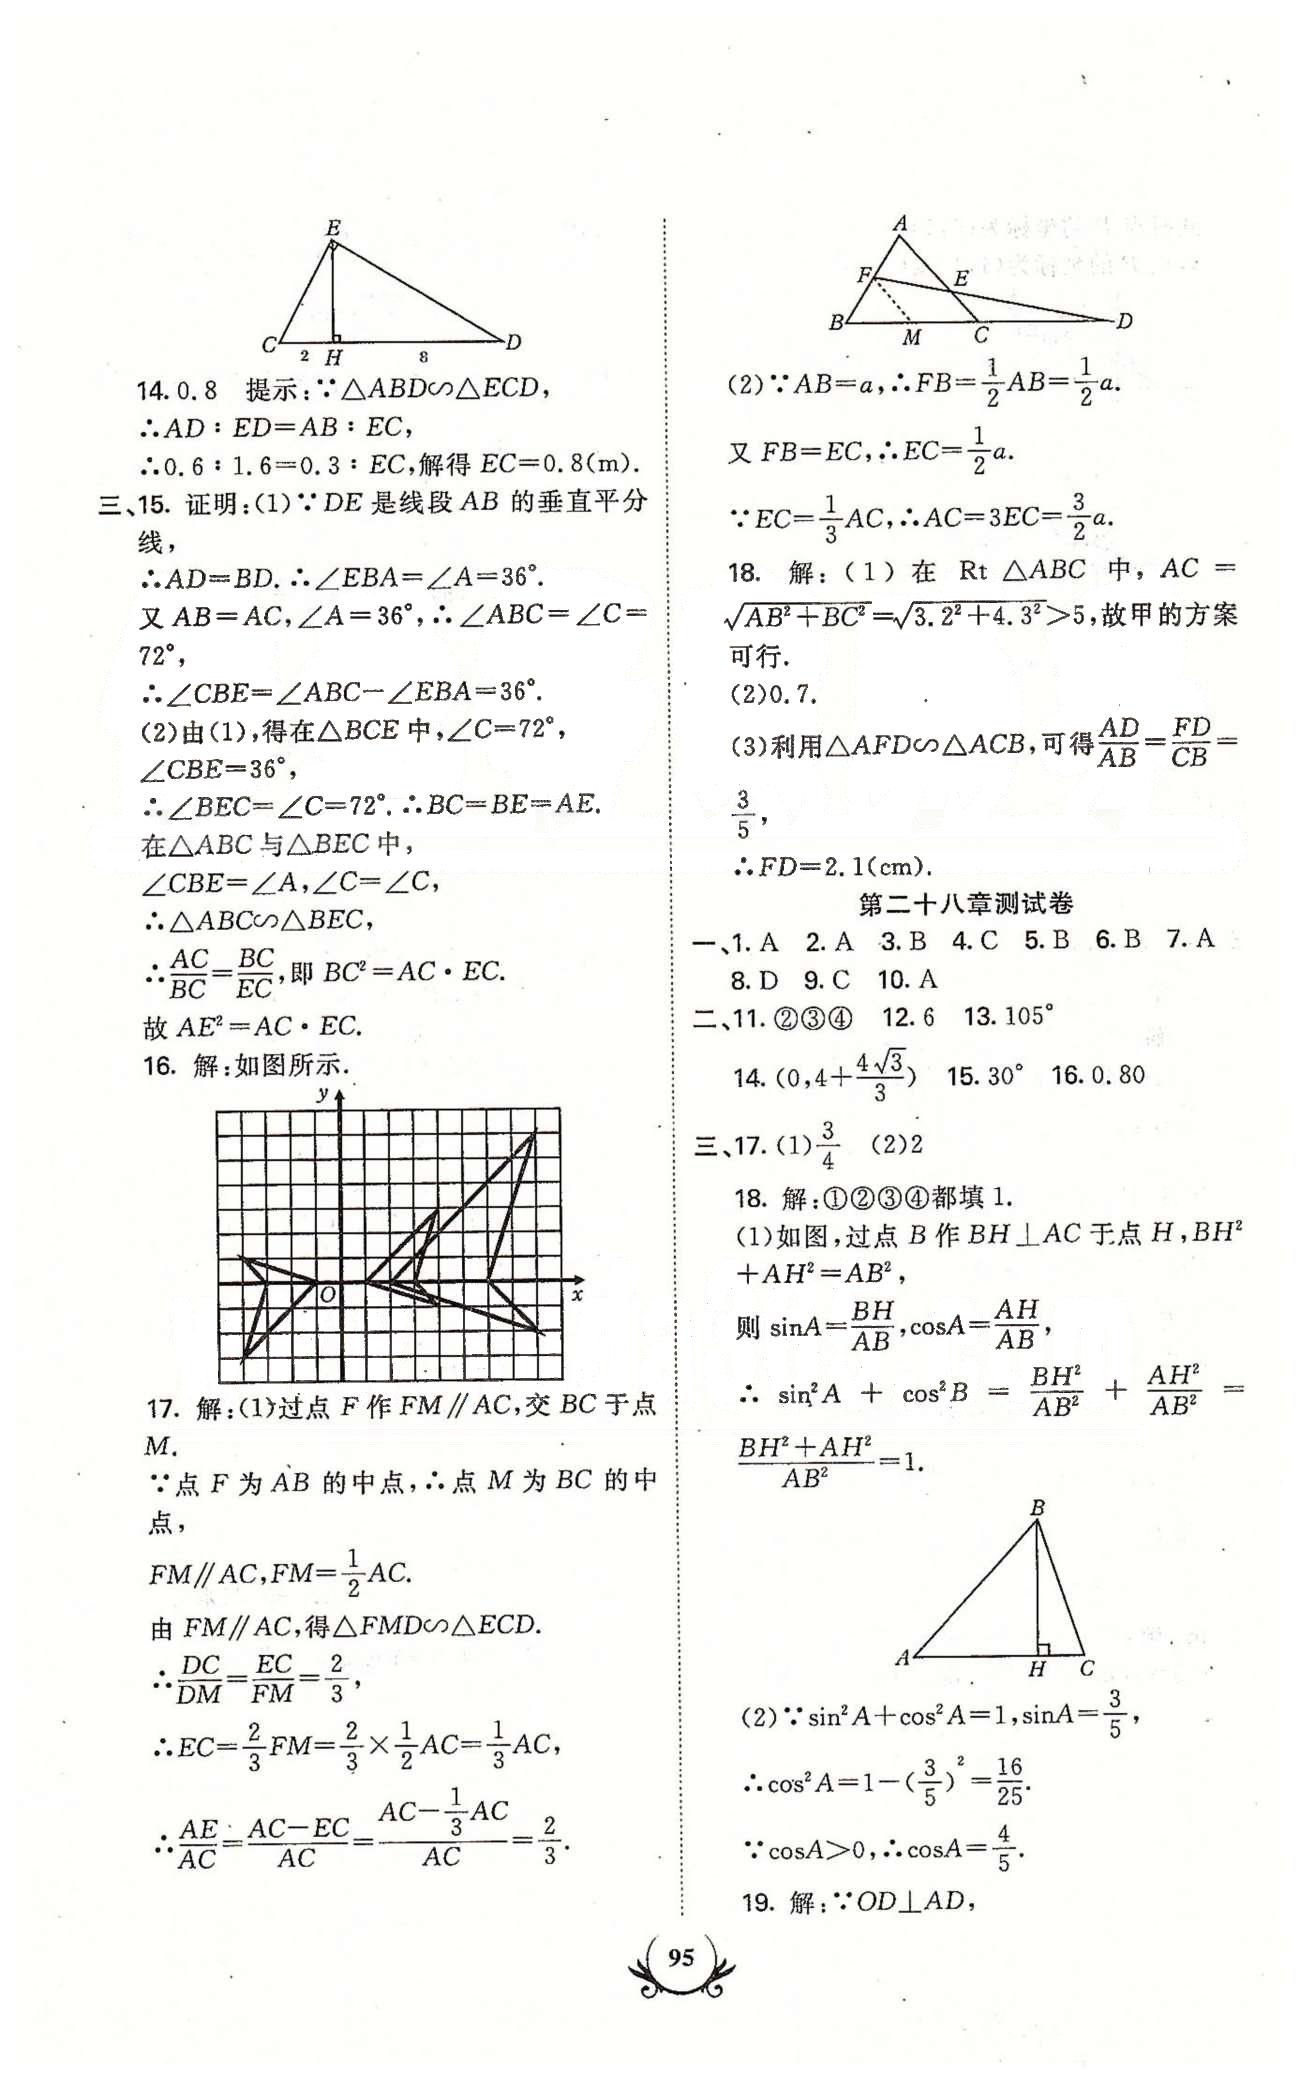 E
C
2
H
8
D
14. 0.8 提示:∵△ABD∽△ECD,
∴AD∶ED=AB∶EC,
∴0.6∶1.6=0.3∶EC,解得 EC=0.8(m).
三、15. 证明:(1)∵DE 是线段 AB 的垂直平分
线,
∴AD=BD.∴∠EBA=∠A=36°.
又 AB=AC,∠A=36°,∴∠ABC=∠C=
72°,
∴∠CBE=∠ABC-∠EBA=36°.
(2)由(1),得在△BCE 中,∠C=72°,
∠CBE=36°,
∴∠BEC=∠C=72°.∴BC=BE=AE.
在△ABC 与△BEC 中,
∠CBE=∠A,∠C=∠C,
∴△ABC∽△BEC,
∴AC/BC=BC/EC,即 BC²=AC·EC.
故 AE²=AC·EC.
16. 解:如图所示.
y
O
x
17. 解:(1)过点 F 作 FM∥AC,交 BC 于点
M.
∵点 F 为 AB 的中点,∴点 M 为 BC 的中
点,
FM∥AC,FM=1/2AC.
由 FM∥AC,得△FMD∽△ECD.
∴DC/DM=EC/FM=2/3,
∴EC=2/3FM=2/3×1/2AC=1/3AC,
∴AE/AC=(AC-EC)/AC=(AC-1/3AC)/AC=2/3.
A
F
E
B
M
C
D
(2)∵AB=a,∴FB=1/2AB=1/2a.
又 FB=EC,∴EC=1/2a.
∵EC=1/3AC,∴AC=3EC=3/2a.
18. 解:(1)在 Rt △ABC 中,AC =
√(AB²+BC²)=√(3.2²+4.3²)>5,故甲的方案
可行.
(2)0.7.
(3)利用△AFD∽△ACB,可得AD/AB=FD/CB=
3/5,
∴FD=2.1(cm).
第二十八章测试卷
一、1. A 2. A 3. B 4. C 5. B 6. B 7. A
8. D 9. C 10. A
二、11. ②③④ 12. 6 13. 105°
14. (0,4+4√3/3) 15. 30° 16. 0.80
三、17. (1)3/4 (2)2
18. 解:①②③④都填 1.
(1)如图,过点 B 作 BH⊥AC 于点 H,BH²
+AH²=AB²,
则 sinA=BH/AB,cosA=AH/AB,
∴ sin²A + cos²B = BH²/AB² + AH²/AB² =
(BH²+AH²)/AB²=1.
B
A
H
C
(2)∵sin²A+cos²A=1,sinA=3/5,
∴cos²A=1-(3/5)²=16/25.
∵cosA>0,∴cosA=4/5.
19. 解:∵OD⊥AD,
95